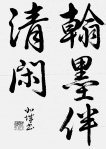 翰墨伴
清閑